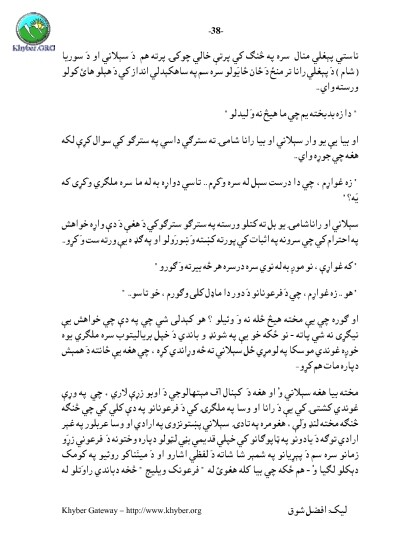 -38-
Khyber.ORG
ناستې پېغلې منال سره په څنګ کې پرتې خالي چوکۍ پرته هم د سېلاني او د سوريا
(شام) د پېغلې رانا تر منځ د ځان ځايَولو سره سم په ساهکېدلي انداز کې د هېلو هائ کولو
ورسته وايِ..
" دا زه بدبخته يم چې ما هيڅ نه وَليدلو "
او بيا يې يو وار سېلاني او بيا رانا شامۍ ته سترګې داسې په سترګو کې سوال کړې لکه
هغه چې جوړه واي..
" زه غواړم ، چې دا درست سېل له سره وکړم .. تاسې دواړه به له ما سره ملګري وکړی که
يَه؟ "
سېلاني او راناشامۍ يو بل ته کتلو ورسته په سترګو سترګو کې د هغې د دې واړه خواهش
په احترام کې چې سرونه په اثبات کې پورته کښته وَ ښورَولو او په ګډه يې ورته ست وَکړو..
"که غواړې ، نو موږ به له نوي سره درسره هر څه بېرته وَ ګورو "
"هو .. زه غواړم ، چې د فرعونانو د دور دا ماډل کلی وګورم ، خو تاسو.. "
او ګوره چې يې مخته هيڅ ځله نه وَ وئيلو ؟ هو کېدلی شي چې په دې چې خواهش يې
نيګړی نه شي پاته - نو ځکه خو يې په شونډو باندې د خپل بريالېتوب سره ملګري يوه
خوږه غوندې موسکا په لومړي ځل سېلاني ته څه وړاندې کړه ، چې هغه يې ځانته د همېش
دپاره مات هم کړو..
مخته بيا هغه سېلاني وُ او هغه د کېنال اف مېتهالوجي د اوبو زړې لارې ، چې په وړې
غوندې کشتۍ کې يې د رانا او وسا په ملګرۍ کې د فرعونانو په دې کلي کې چې څنګه
څنګه مخته لنډ وَلې ، هغومره په تادۍ سېلاني پښتونزوی په ارادي او وسا عربلور په غېر
ارادي توګه د يادونو په ټاپوګانو کې خپلې قديمې پټې لټولو دپاره وختونه د فرعوني زړو
زمانو سره سم د پېړيانو په شمېر شا شاته د لفظي اشارو او د ميناکو رويو په کومک
دېکلو لګيا وُ - هم ځکه چې بيا کله هغوئ له " فرعونک ويليج " څخه دباندې راوَتلو له
Khyber Gateway – http://www.khyber.org
ليک: افضل شوق